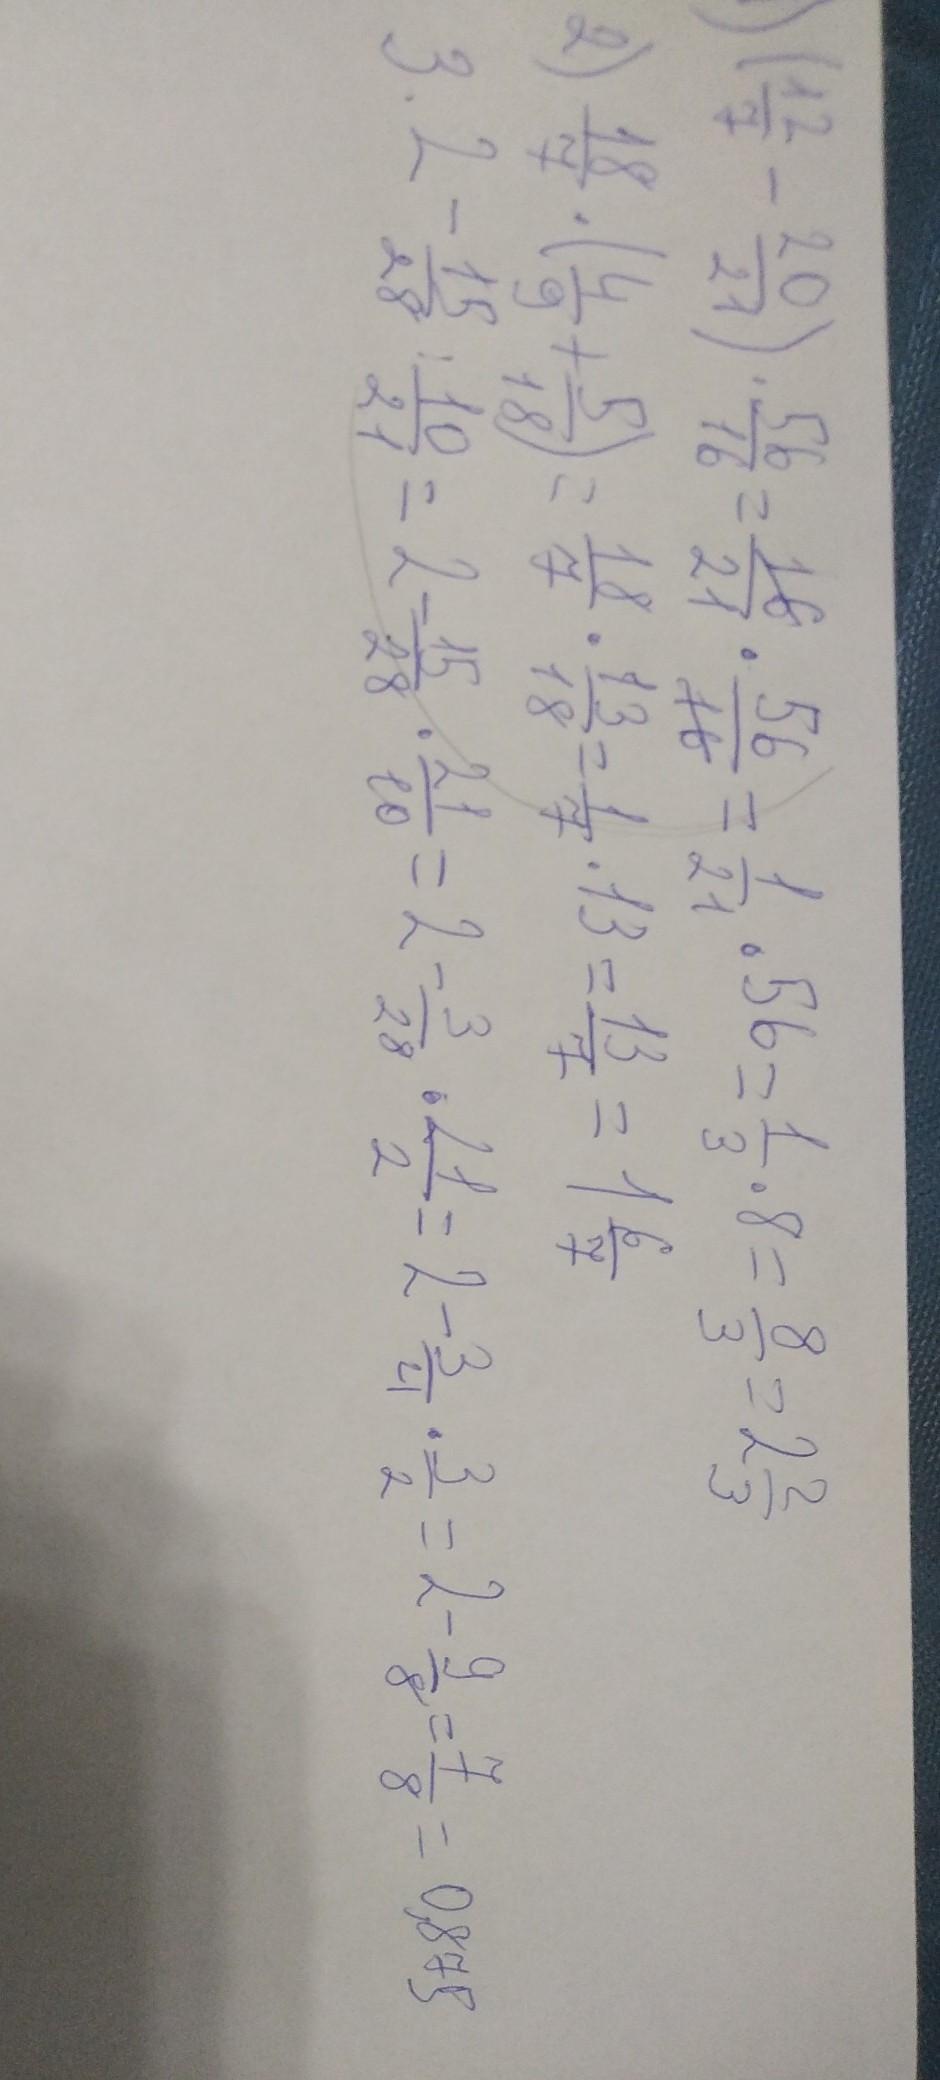 1) (12/7 - 20/21) · 56/16 = 16/21 · 56/16 = 1/21 · 56 = 1/3 · 8 = 8/3 = 2 2/3
2) 18/7 · (4/9 + 5/18) = 18/7 · 13/18 = 1/7 · 13 = 13/7 = 1 6/7
3. 2 - 15/28 : 10/21 = 2 - 15/28 · 21/10 = 2 - 3/28 · 21/2 = 2 - 3/4 · 3/2 = 2 - 9/8 = 7/8 = 0,875